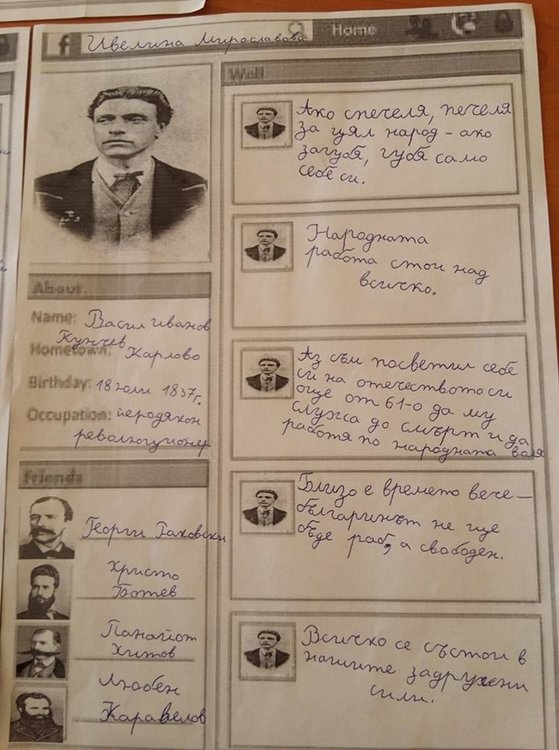 f Ивелина Мирославова
Home
About
Name: Васил Иванов
Кунчев
Hometown: Карлово
Birthday: 18 юли 1837г.
Occupation: йеродякон
революционер
Friends
Георги Раковски
Христо
Ботев
Панайот
Хитов
Любен
Каравелов
Wall
Ако спечеля, печеля
за цял народ - ако
загубя, губя само
себе си.
Народната
работа стои над
всичко.
Аз съм посветил себе
си на отечеството си
още от 61-о да му
служа до смърт и да
работя по народната воля
Близо е времето вече –
българинът не ще
бъде раб, а свободен.
Всичко се състои в
нашите задружени
сили.